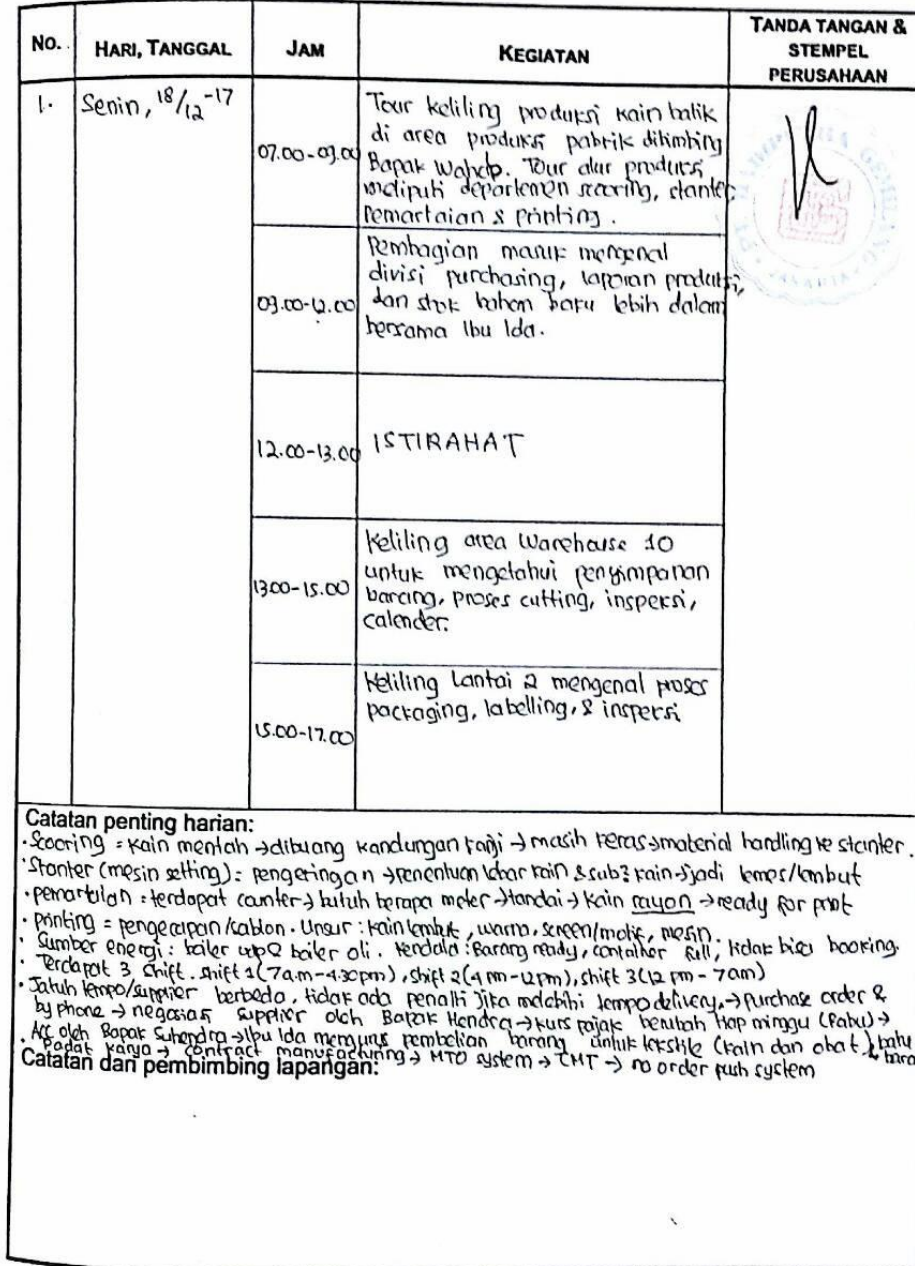 NO.
HARI, TANGGAL
JAM
KEGIATAN
TANDA TANGAN &
STEMPEL
PERUSAHAAN
1.
Senin, 18/12-17
07.00-09.00
Tour keliling produksi kain batik
di area produksi pabrik dibimbing
Bapak Wahab. Tour alur produksi
meliputi departemen scooring, stanter,
& Printing.
09.00-12.00
Pembagian masuk mengenal
divisi purchasing, laporan produksi,
dan stok bahan baku lebih dalam
bersama Ibu Ida.
12.00-13.00
ISTIRAHAT
13.00-15.00
Keliling area Warehouse 10
untuk mengetahui penyimpanan
barang, proses cutting, inspeksi,
calender.
15.00-17.00
Keliling Lantai 2 mengenal proses
packaging, labelling, & inspeksi
GEMILANG
JAKARTA
PT.
Catatan penting harian:
• Scooring = kain mentah → dibuang kandungan kanji → masih keras → material handling ke stanter.
• Stanter (mesin setting) = pengeringan → penentuan lebar kain & kain → jadi lemes/lembut
• = terdapat counter → butuh berapa meter → tandai → kain rayon → ready for print
• printing = pengecapan/sablon. Unsur : kain lembut, warna, screen/motif, mesin.
• Sumber energi : boiler uap & boiler oli. Kendala : Barang ready, container full, tidak bisa booking.
• Terdapat 3 shift. Shift 1 (7 a.m-4.30 pm), shift 2 (4 pm-12 pm), shift 3 (12 pm - 7 am)
• Jatuh tempo/supplier berbeda, tidak ada penalti jika melebihi tempo delivery, → purchase order &
by phone → negosiasi supplier oleh Bapak Hendra → kurs pajak berubah tiap minggu (Rabu) →
Acc oleh Bapak Suhendra → Ibu Ida mengurus pembelian barang untuk tekstile (kain dan obat) & batu bara
• Padat karya → contract manufacturing → MTO system → CMT → no order push system
Catatan dari pembimbing lapangan: